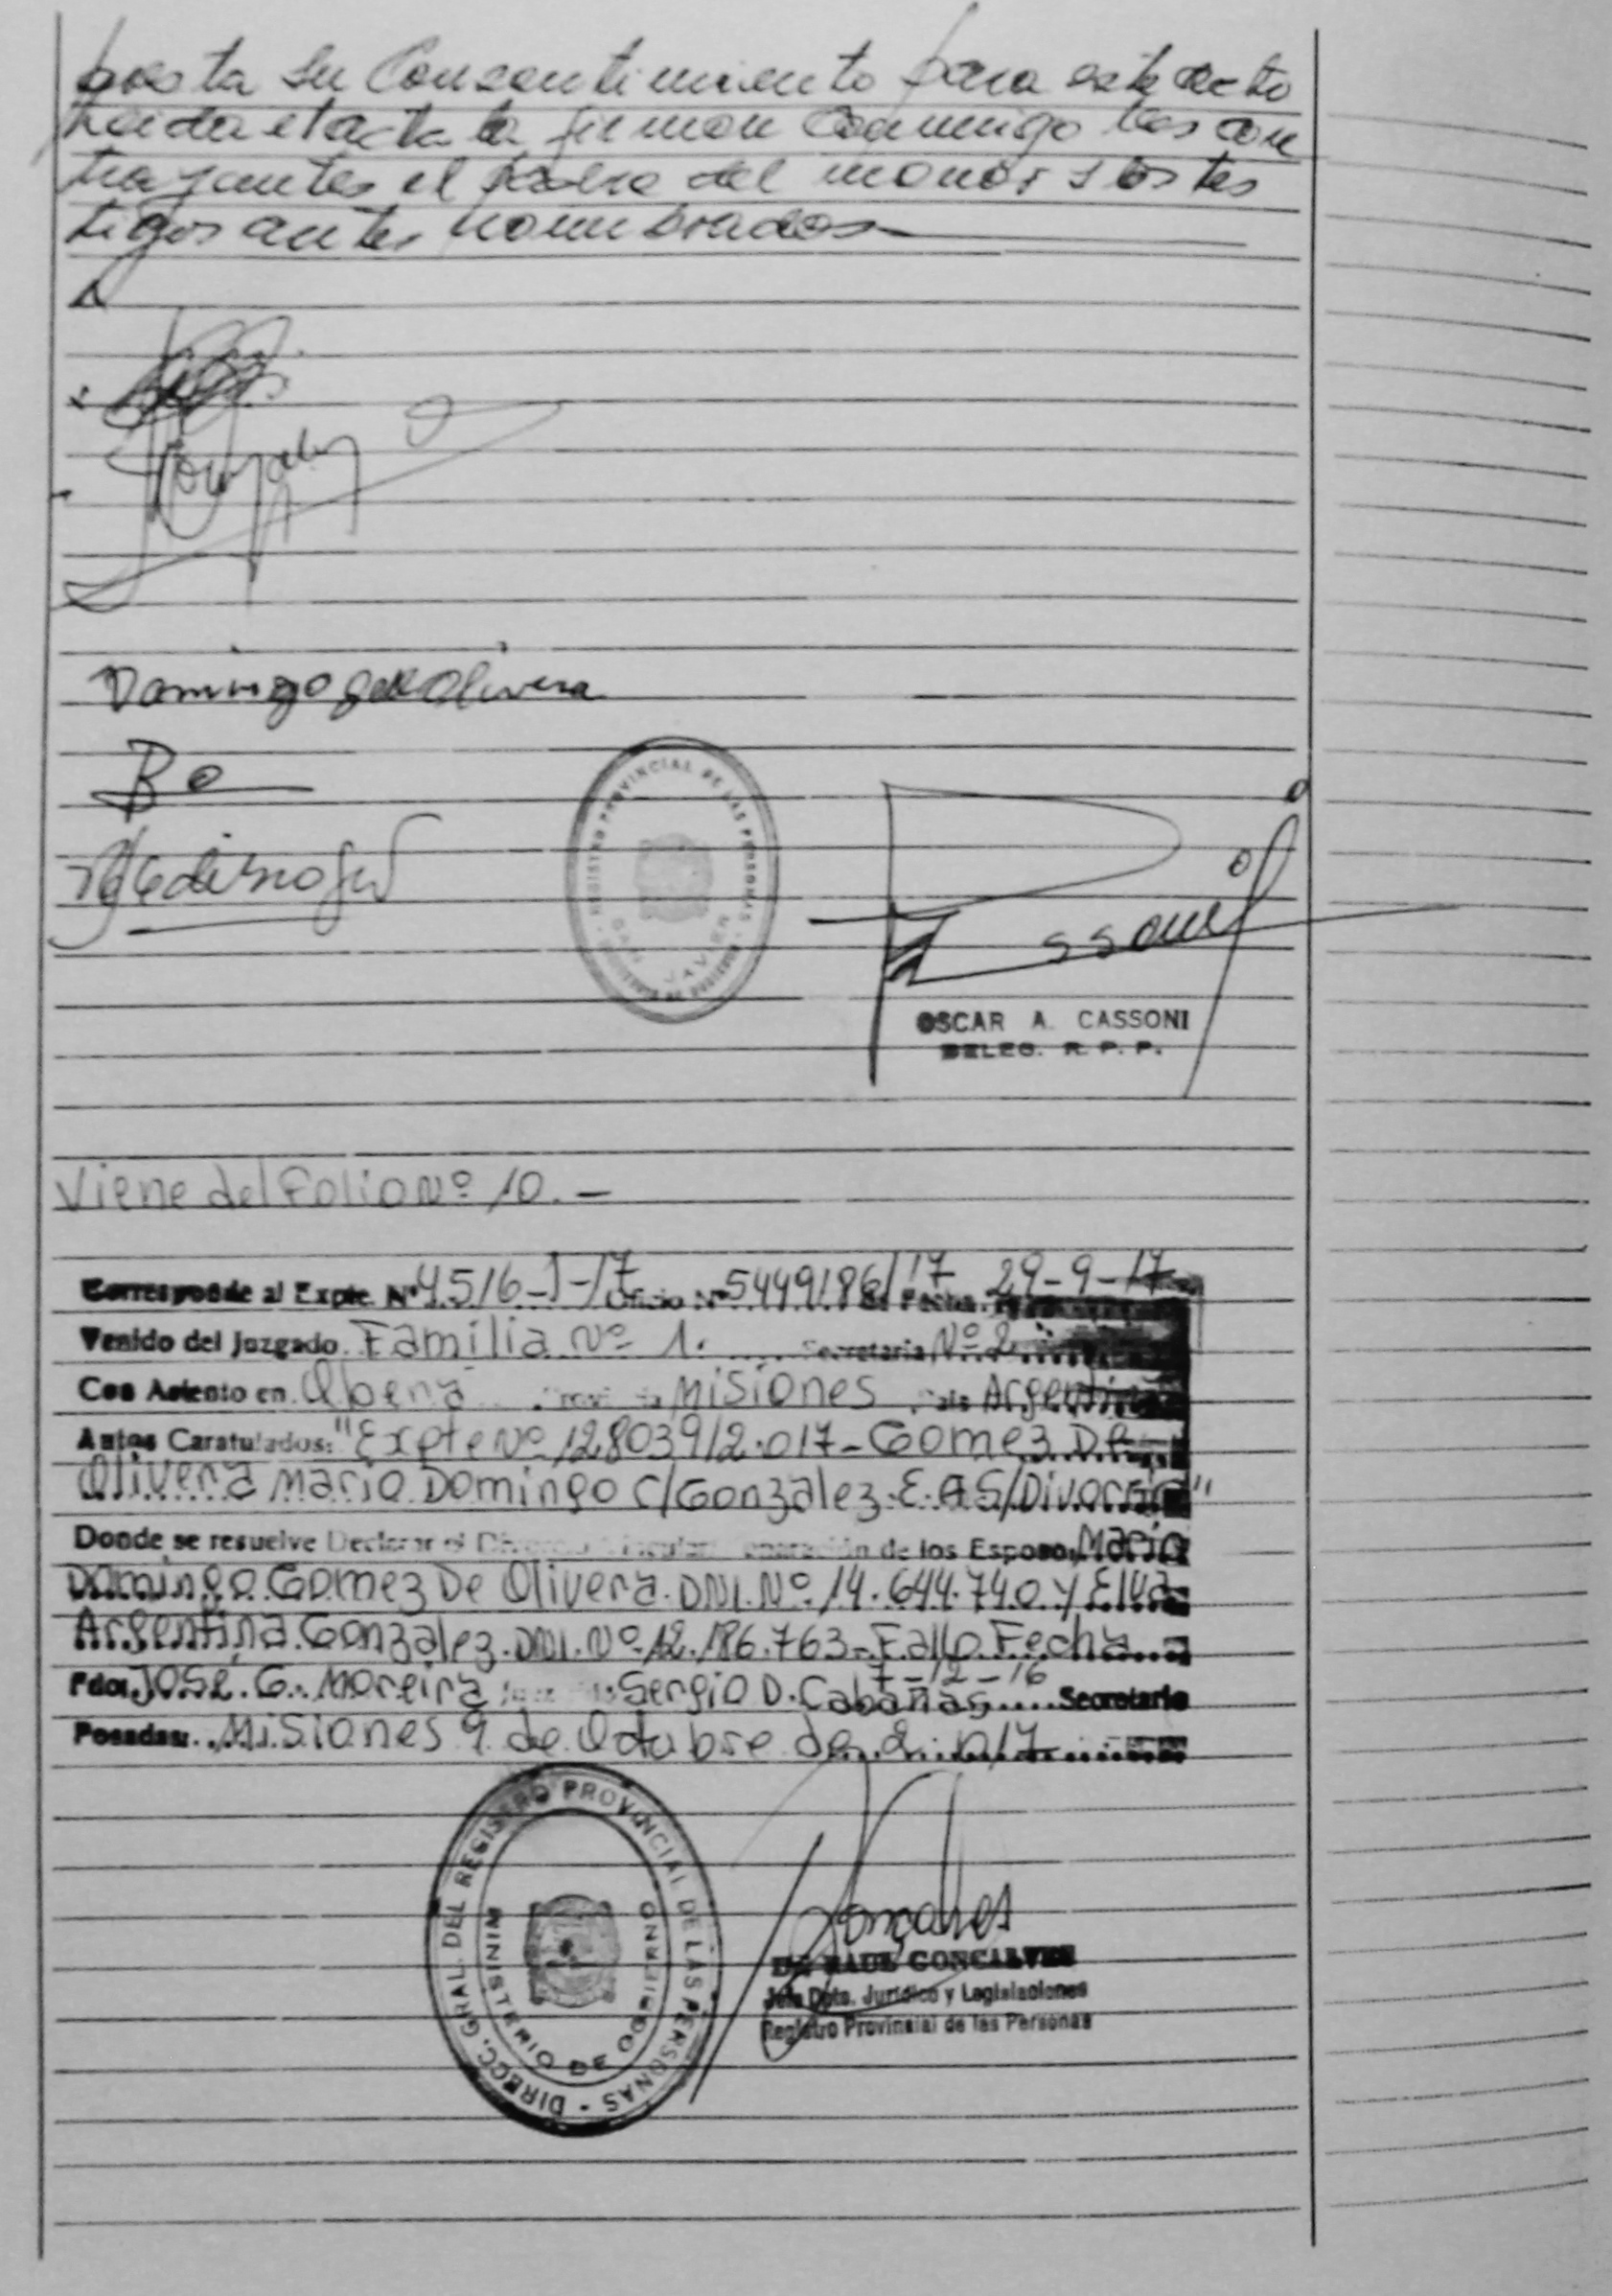 presta su Consentimiento para este acto
Leida el acta la firman conmigo los con
trayentes el padre del menor y los tes
tigos antes nombrados
Gonzalez
Domingo G de Olivera
REGISTRO PROVINCIAL DE LAS PERSONAS
SAN JAVIER
OSCAR A. CASSONI
DELEG. R. P. P.
Viene del Folio Nº 10.-
Corresponde al Expte. Nº 4516-J-17 Oficio Nº 5449186/17 Fecha 29-9-17
Venido del Juzgado Familia Nº 1. Secretaria Nº 2
Con Asiento en Obera Misiones Argentina
Autos Caratulados: "Expte Nº 128039/2.017-Gomez De
Olivera Mario Domingo c/Gonzalez.E.A S/Divorcio"
Donde se resuelve Declarar el de los Esposos Mario
Domingo Gomez De Olivera.DNI.Nº 14.644.740 y Elva
Argentina Gonzalez.DNI.Nº 12.186.763-Fallo Fecha
7-12-16
Fdo: José G. Moreira Sergio D. Cabañas Secretario
Posadas: Misiones 9 de Octubre de 2.017
DIRECC. GRAL. DEL REGISTRO PROVINCIAL DE LAS PERSONAS
MINISTERIO DE GOBIERNO
Goncalves
Dr RAUL GONCALVES
Jefe Dpto. Jurídico y Legislaciones
Registro Provincial de las Personas